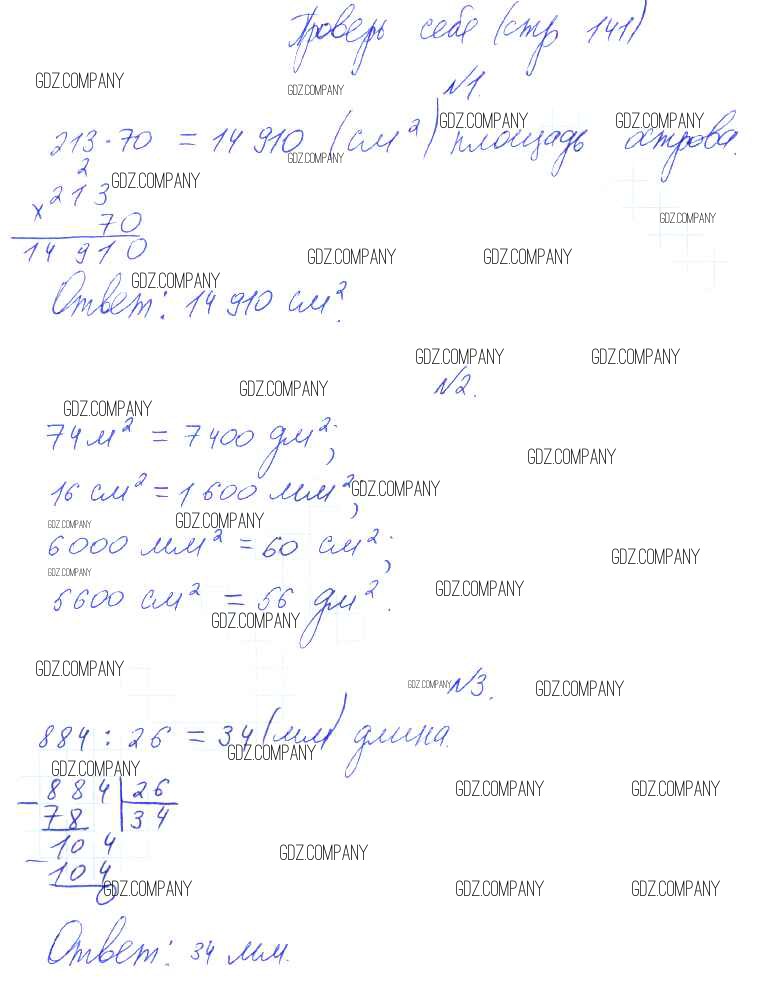 Проверь себе (стр 141)
GDZ.COMPANY
GDZ.COMPANY
№1.
GDZ.COMPANY GDZ.COMPANY
213·70 = 14 910 (см²) площадь острова.
GDZ.COMPANY
2
GDZ.COMPANY
× 213
70
GDZ.COMPANY
14 910
GDZ.COMPANY GDZ.COMPANY
GDZ.COMPANY
Ответ: 14 910 см².
GDZ.COMPANY GDZ.COMPANY
№2.
GDZ.COMPANY
GDZ.COMPANY
74 м² = 7400 дм²;
GDZ.COMPANY
16 см² = 1 600 мм²;
GDZ.COMPANY
GDZ.COMPANY GDZ.COMPANY
6000 мм² = 60 см²;
GDZ.COMPANY
GDZ.COMPANY
GDZ.COMPANY
5600 см² = 56 дм².
GDZ.COMPANY
GDZ.COMPANY
GDZ.COMPANY №3. GDZ.COMPANY
884 : 26 = 34 (мм) длина.
GDZ.COMPANY
GDZ.COMPANY
GDZ.COMPANY GDZ.COMPANY
– 884 | 26
78 | 34
– 104
GDZ.COMPANY
104
0
GDZ.COMPANY GDZ.COMPANY GDZ.COMPANY
Ответ: 34 мм.